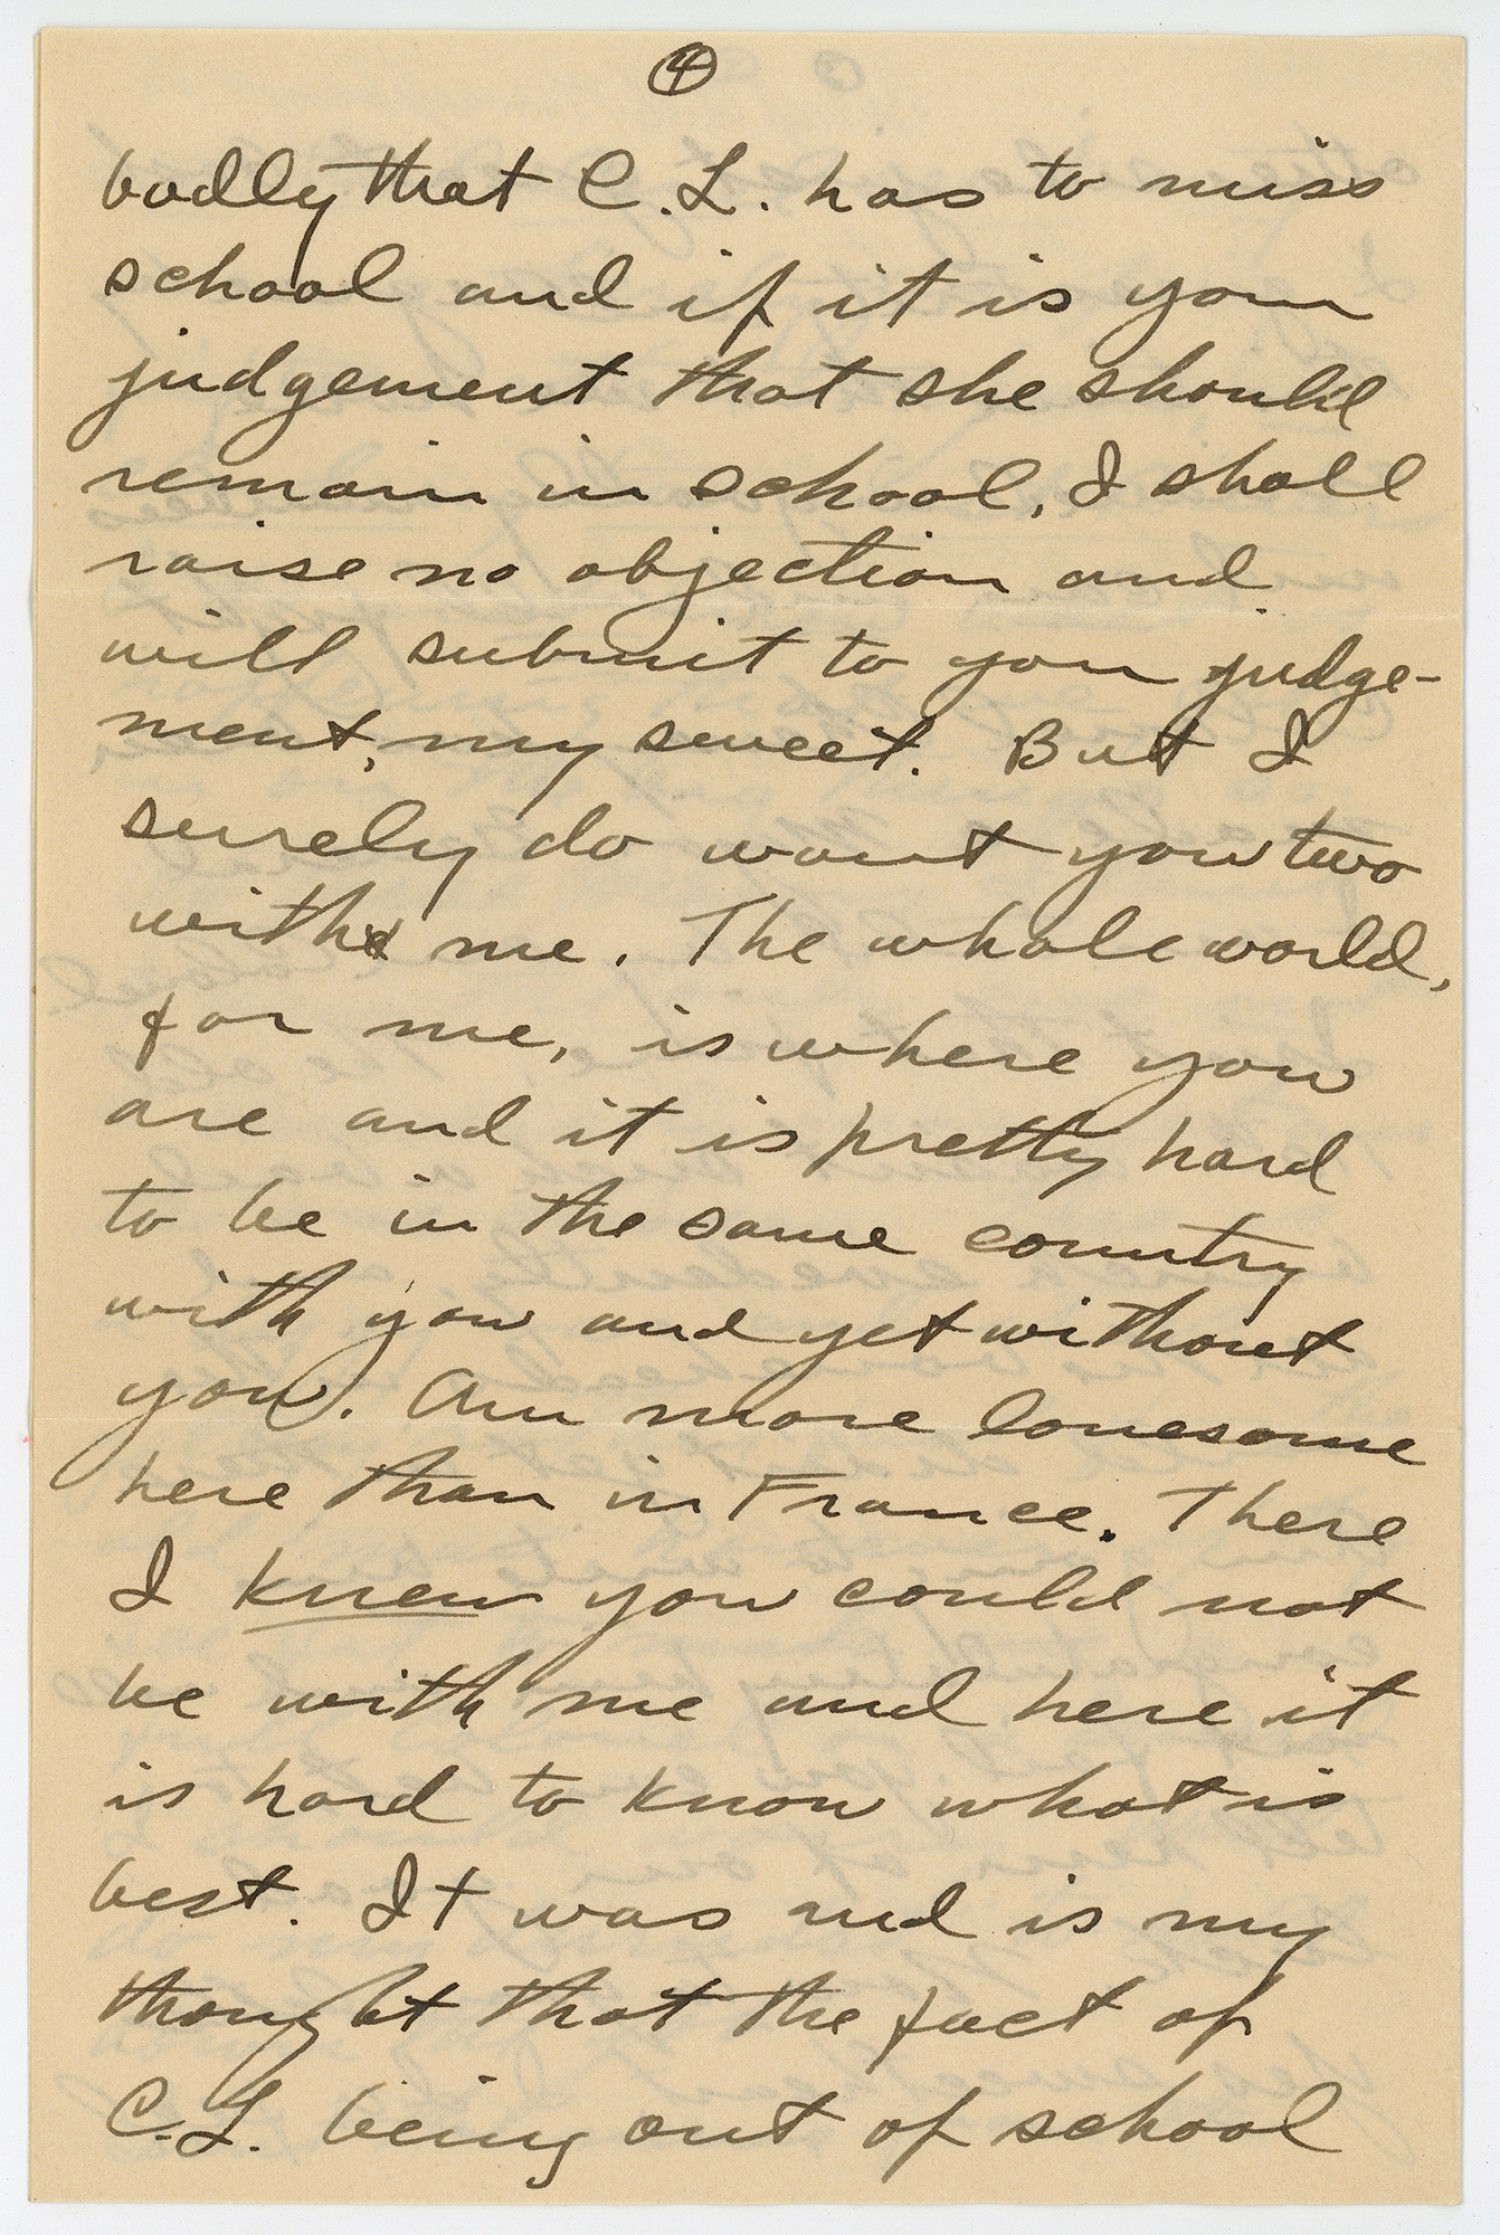 ④
badly that C.L. has to miss
school and if it is your
judgement that she should
remain in school, I shall
raise no objection and
will submit to your judge-
ment, my sweet. But I
surely do want you two
with me. The whole world,
for me, is where you
are and it is pretty hard
to be in the same country
with you and yet without
you. Am more lonesome
here than in France. There
I knew you could not
be with me and here it
is hard to know what is
best. It was and is my
thought that the fact of
C.L. being out of school